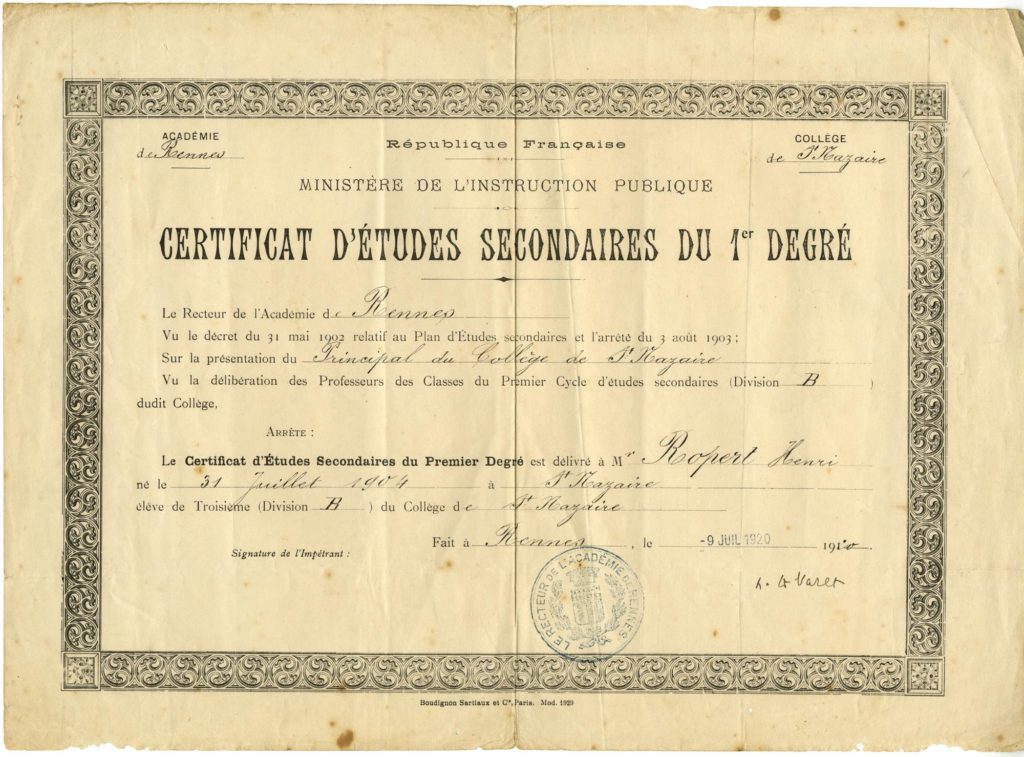 ACADÉMIE
de Rennes
République Française
COLLÈGE
de St Nazaire
MINISTÈRE DE L'INSTRUCTION PUBLIQUE
CERTIFICAT D'ÉTUDES SECONDAIRES DU 1er DEGRÉ
Le Recteur de l'Académie de Rennes
Vu le décret du 31 mai 1902 relatif au Plan d'Études secondaires et l'arrêté du 3 août 1903;
Sur la présentation du Principal du Collège de St Nazaire
Vu la délibération des Professeurs des Classes du Premier Cycle d'études secondaires (Division B )
dudit Collège,
ARRÊTE :
Le Certificat d'Études Secondaires du Premier Degré est délivré à Mr Ropert Henri
né le 31 Juillet 1904 à St Nazaire
élève de Troisième (Division B ) du Collège de St Nazaire
Fait à Rennes, le -9 JUIL 1920 1920.
Signature de l'Impétrant :
LE RECTEUR DE L'ACADÉMIE DE RENNES
Boudignon Sartiaux et Cie, Paris. Mod. 1929